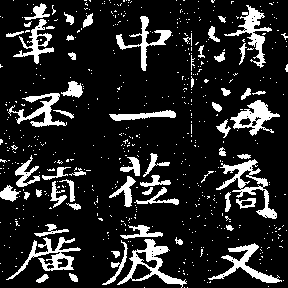 清海裔又
中一莅疲
彰丕績廣